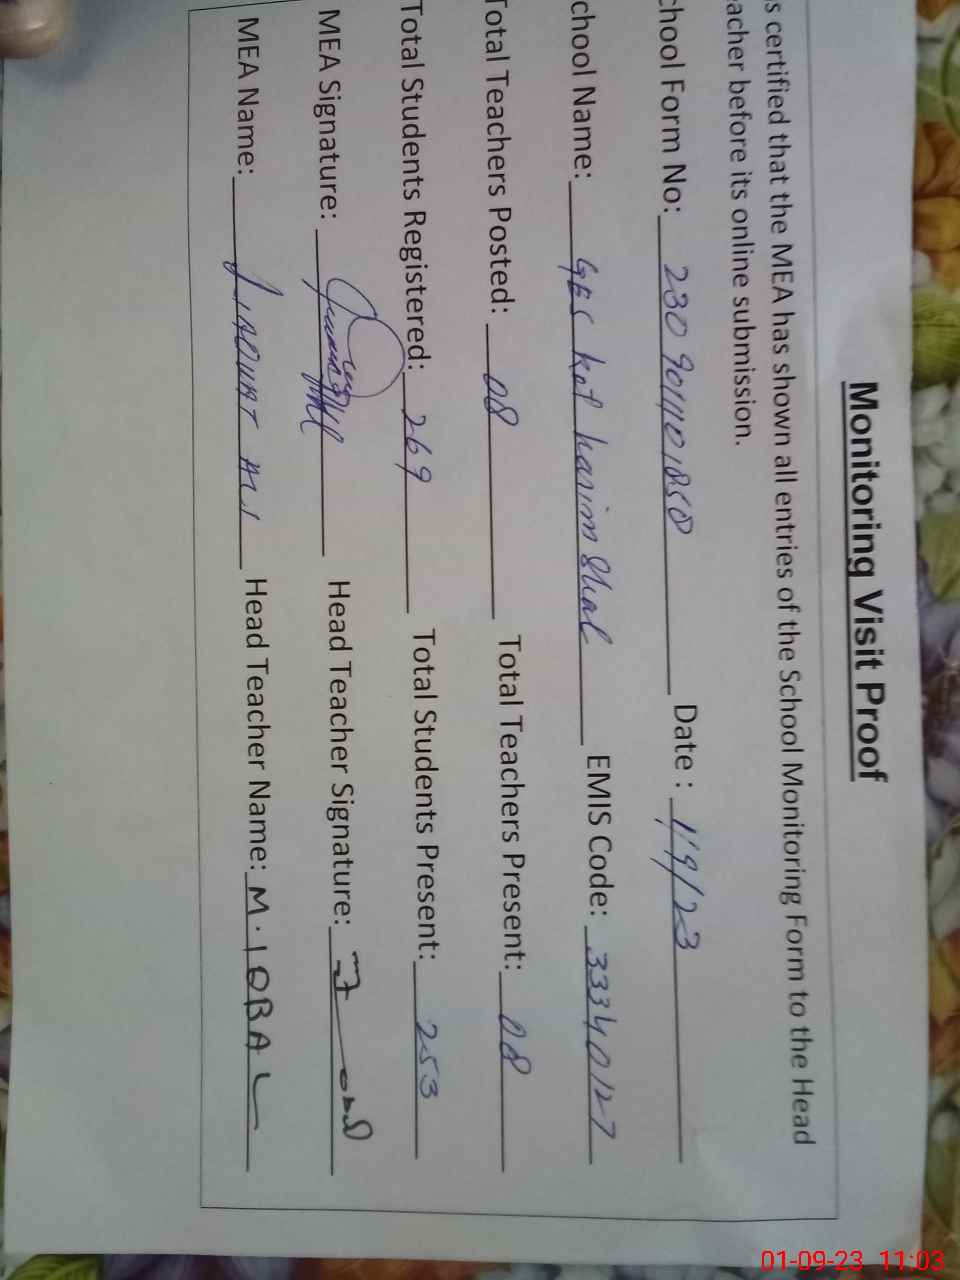 Monitoring Visit Proof
s certified that the MEA has shown all entries of the School Monitoring Form to the Head
eacher before its online submission.
chool Form No: 2309011101858 Date : 1/9/23
chool Name: GES kot karim Shah EMIS Code: 33340127
Total Teachers Posted: 08 Total Teachers Present: 08
Total Students Registered: 269 Total Students Present: 253
MEA Signature: Head Teacher Signature:
MEA Name: LIAQUAT ALI Head Teacher Name: M. IQBAL
01-09-23 11:03